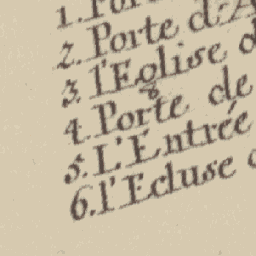 1. Por
2. Porte d'A
3. l'Eglise d
4. Porte de
5. L'Entrée
6. l'Ecluse